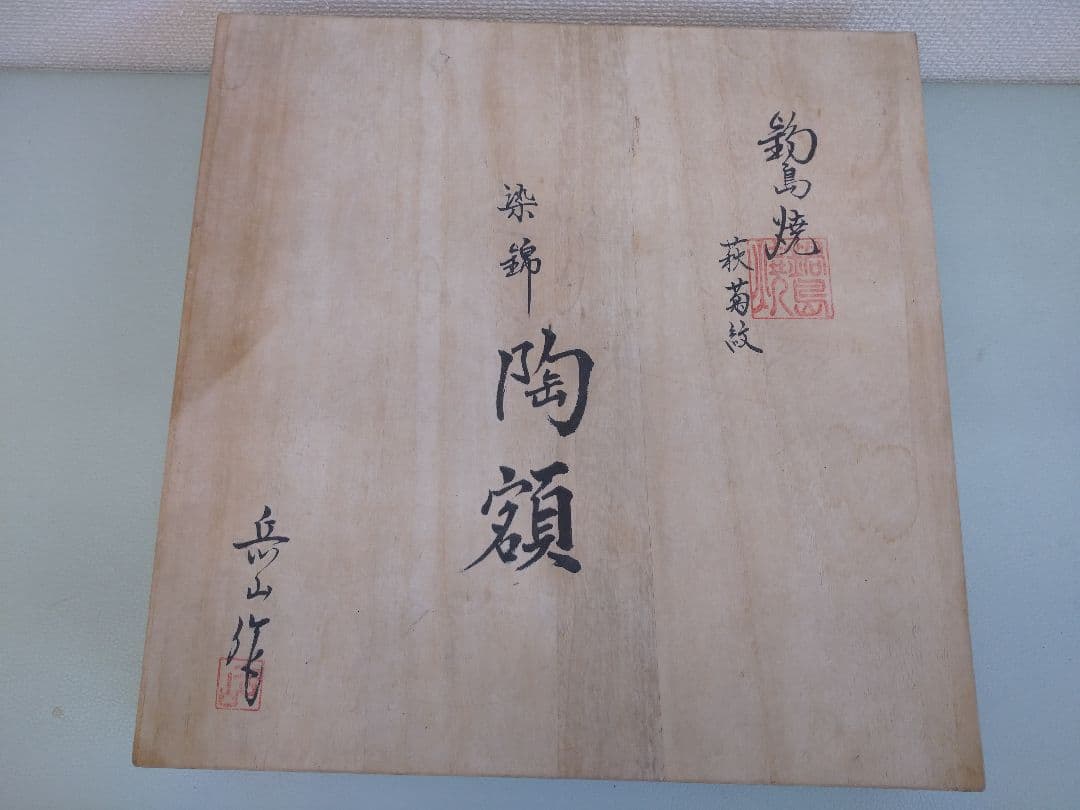 鍋島焼
萩菊紋
染錦陶額
岳山作
鍋島焼